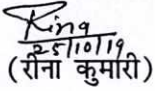 Rina
25/10/19
(रीना कुमारी)